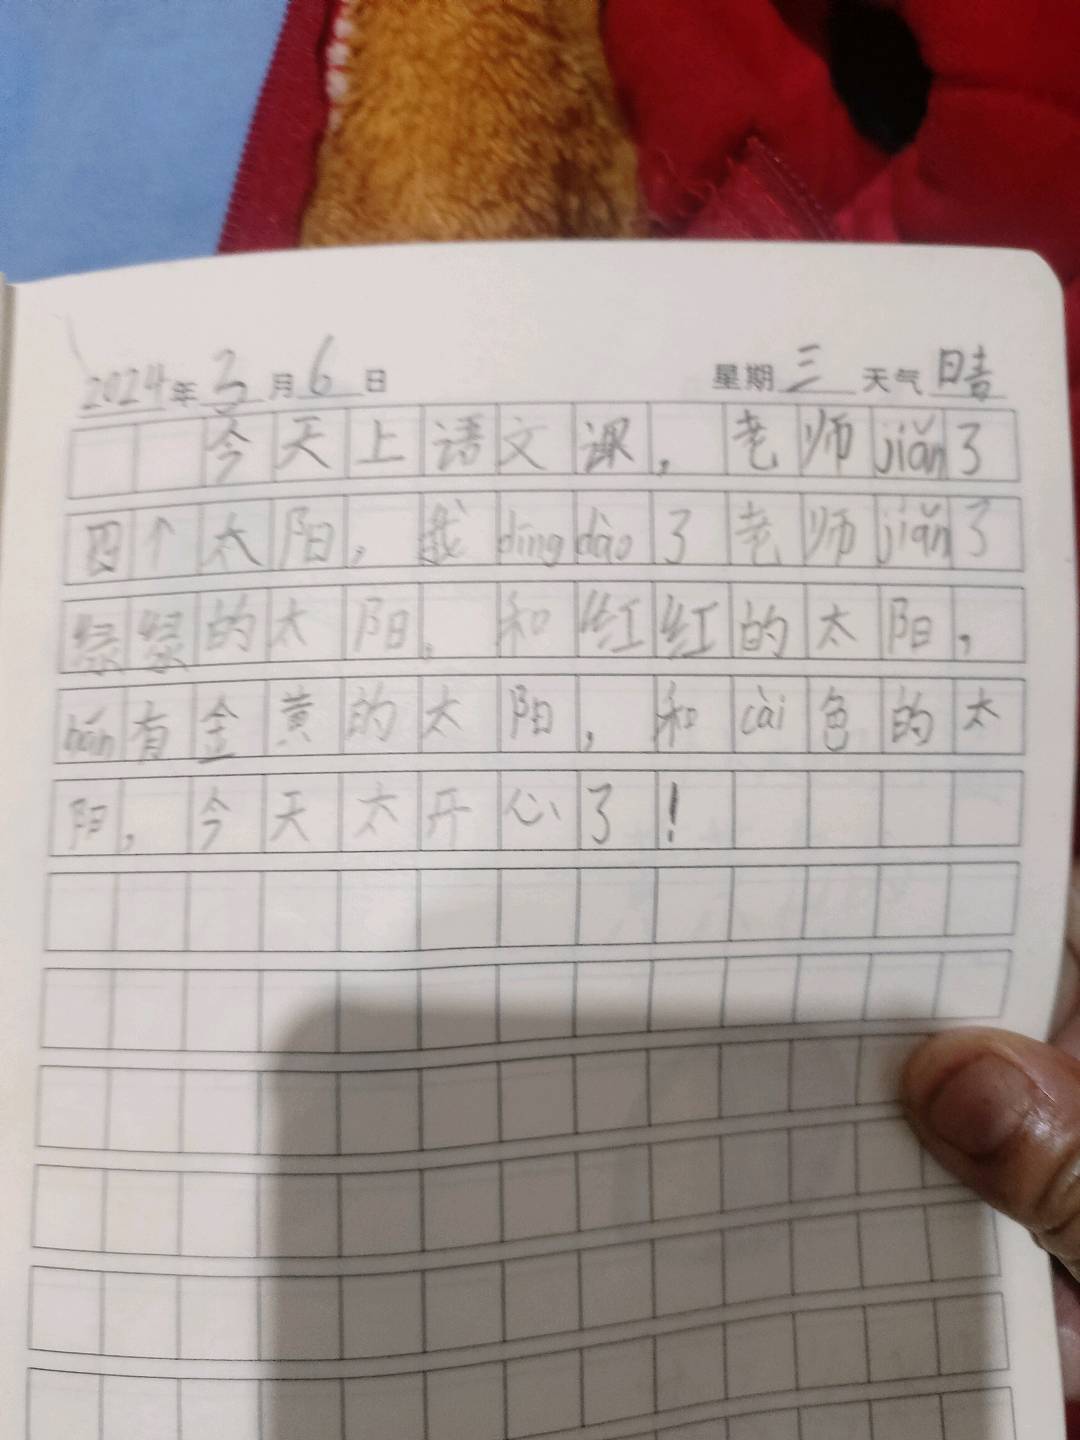 2024年3月6日 星期三 天气晴
今天上语文课，老师jiǎn了
四个太阳，我dīngdào了老师jiǎn了
绿绿的太阳。和红红的太阳，
hán有金黄的太阳，和cài色的太
阳，今天太开心了！